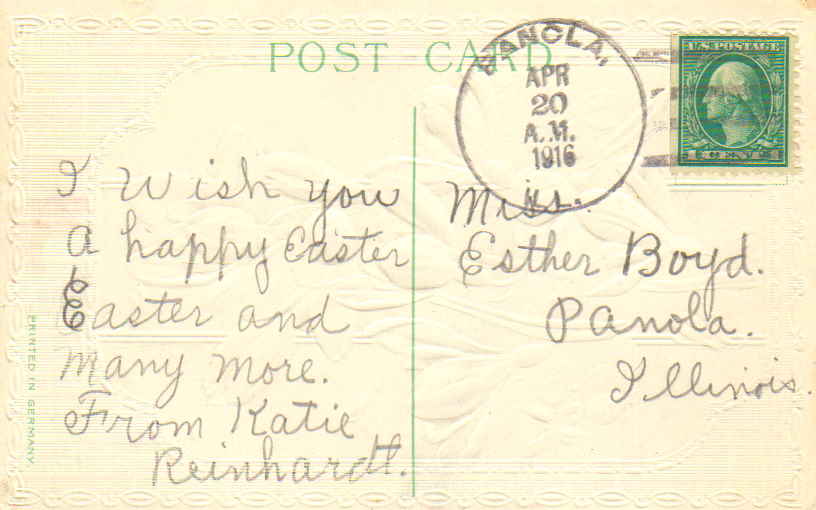 POST CARD
PANOLA,
APR
20
A.M.
1916
U.S. POSTAGE
1 CENT 1
I Wish you
a happy Easter
Easter and
many more.
From Katie
Reinhardt.
Miss.
Esther Boyd.
Panola.
Illinois.
PRINTED IN GERMANY